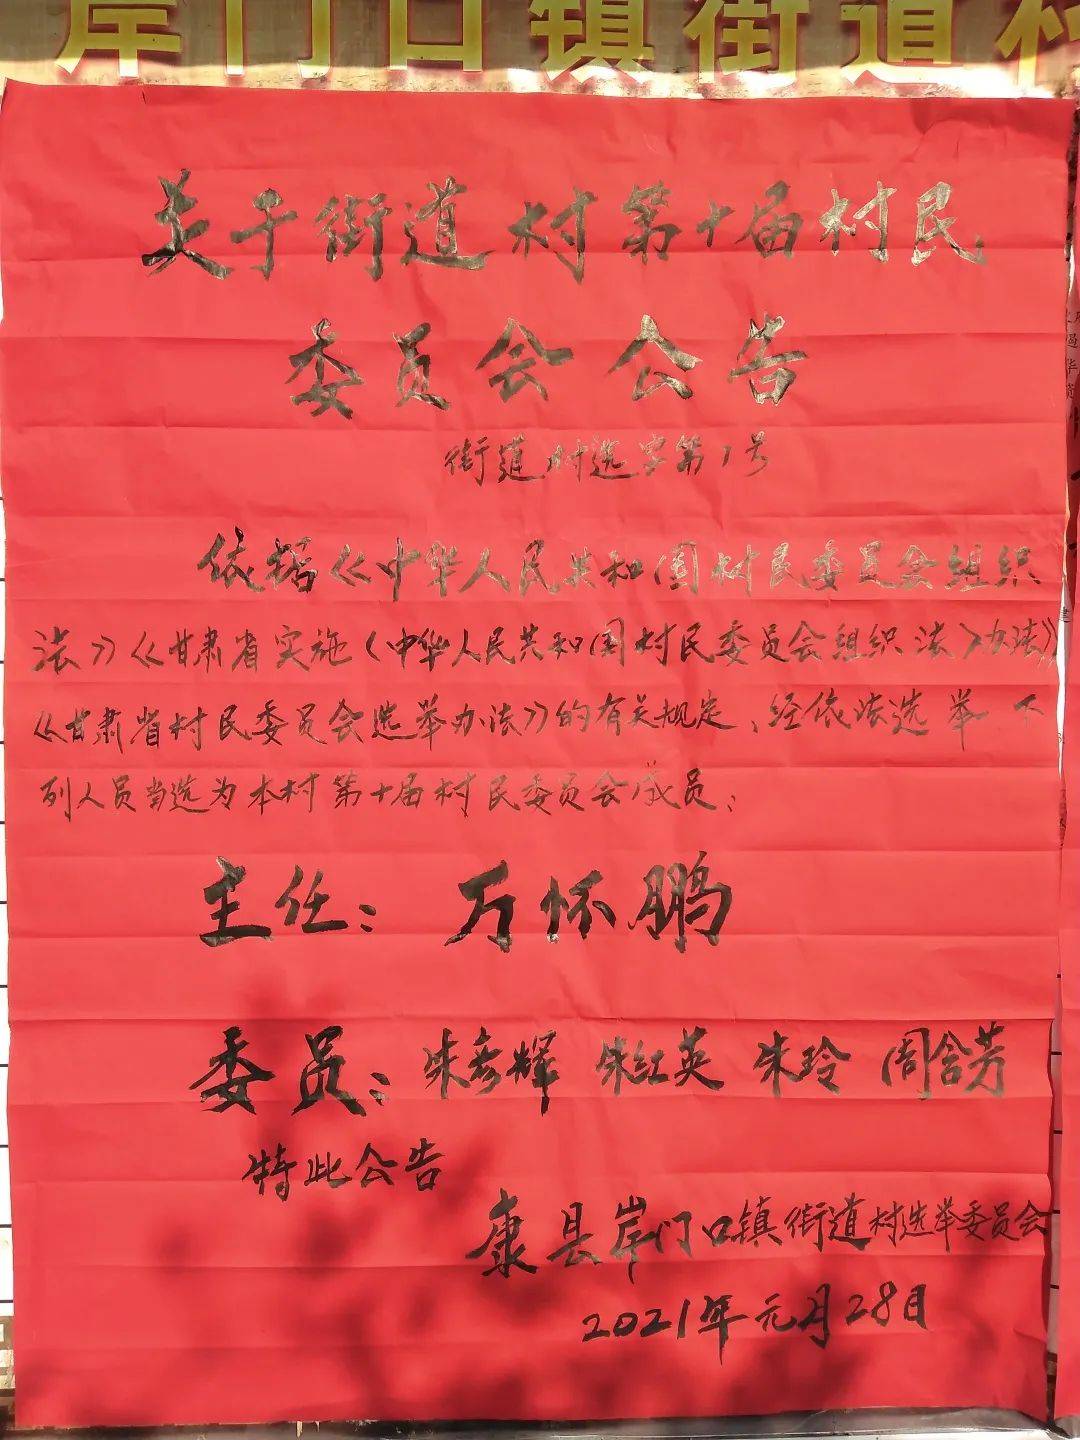 岸门口镇街道村
关于街道村第十届村民
委员会公告
街道村选字第1号
依据《中华人民共和国村民委员会组织
法》《甘肃省实施〈中华人民共和国村民委员会组织法〉办法》
《甘肃省村民委员会选举办法》的有关规定、经依法选举下
列人员当选为本村第十届村民委员会成员:
主任:万怀鹏
委员:朱彦辉 朱红英 朱玲 周含芳
特此公告
康县岸门口镇街道村选举委员会
2021年元月28日